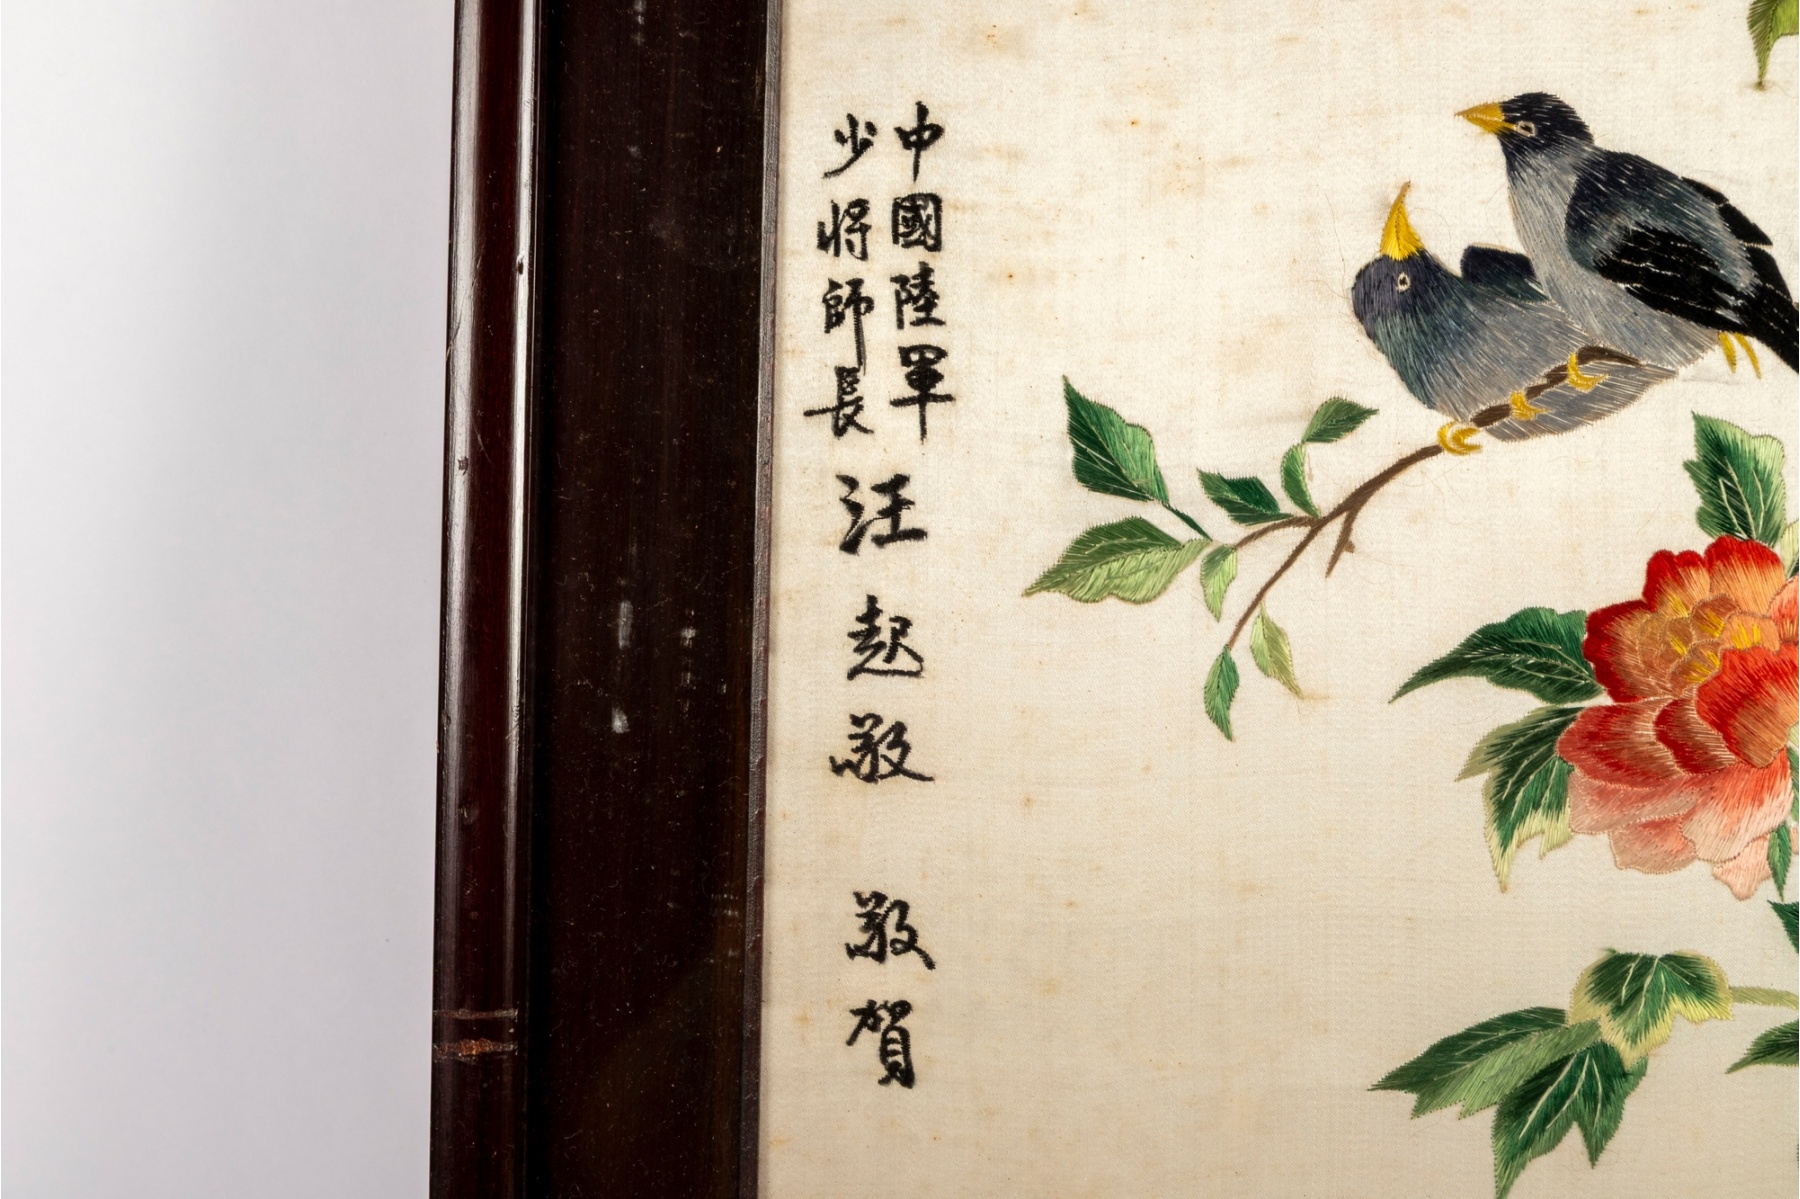 中國陸軍
少將師長
汪起敬 敬賀